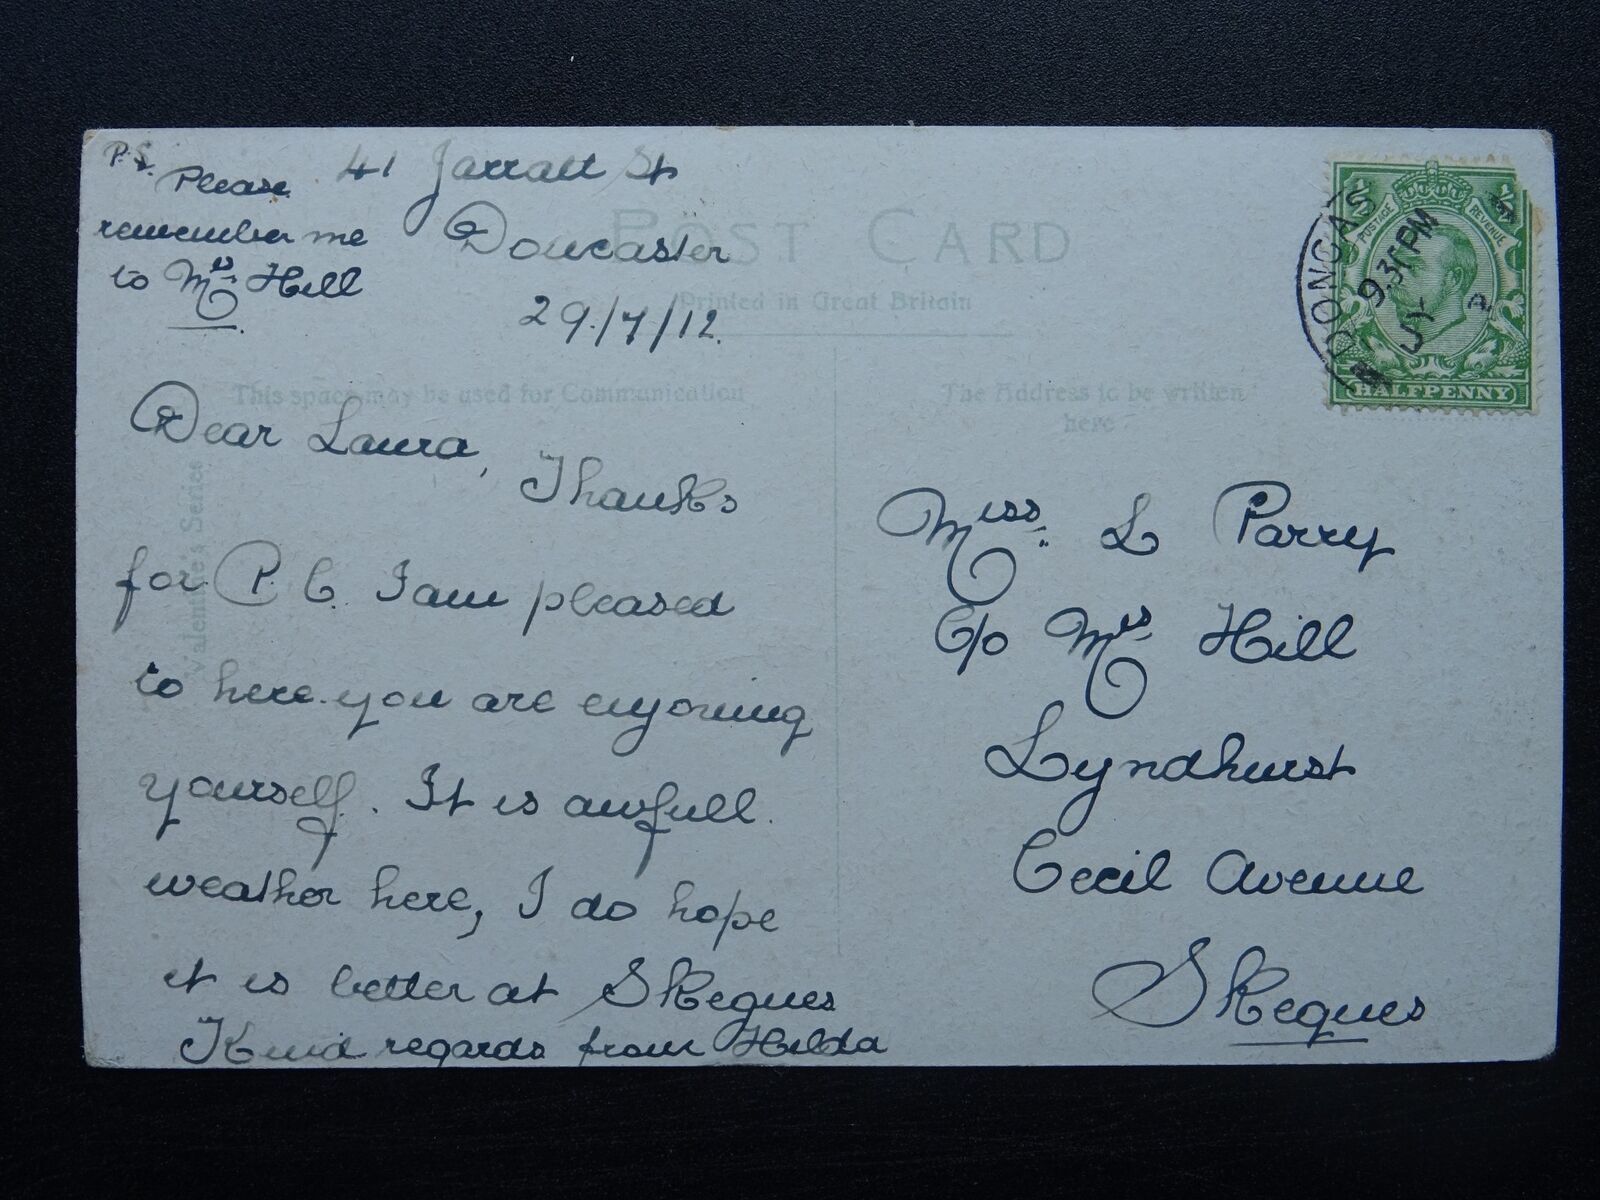 P.S. Please
remember me
to Mrs Hill
41 Jarratt St
Doncaster
29/7/12.
POST CARD
Printed in Great Britain
This space may be used for Communication
The Address to be written
here
Valentine's Series
Dear Laura,
Thanks
for P.C. I am pleased
to here you are enjoning
yourself. It is awfull
weather here, I do hope
it is better at Skegnes
Kind regards from Hilda
Miss L Parry
C/o Mrs Hill
Lyndhurst
Cecil Avenue
Skegnes
DONCAS
9.30PM
JY
POSTAGE
REVENUE
HALFPENNY